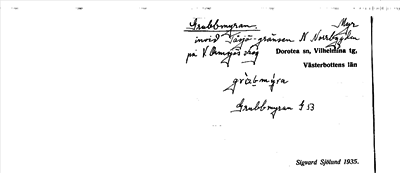 Grubbmyran. Myr
invid Tåsjö-gränsen N. Norrbygden
på V. Ormsjös skog Dorotea sn, Vilhelmina tg,
Västerbottens län
Grubbmyran f 53
Sigvard Sjölund 1935.